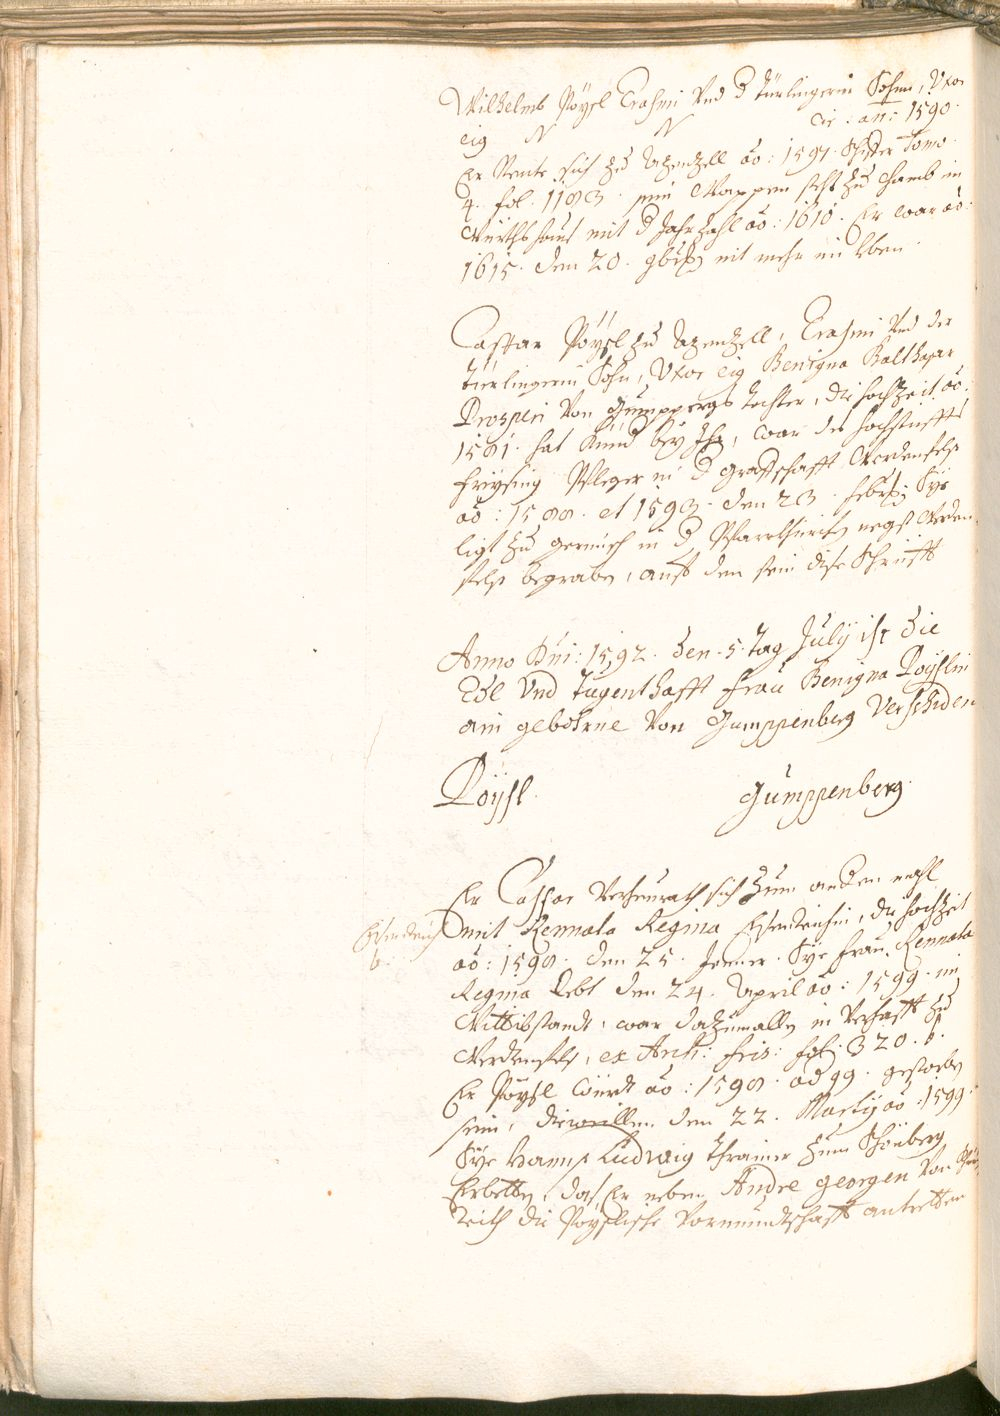 Wilhelmb Pöysl Erasmi Vnd d Türlingerin Sohn, Vxor
eig N N cir. an: 1590.
Er Nente sich zu Azenzell ao: 1597. Tomo
4. fol. 1183. sein Wappen steht zu Chamb im
Würthshaus mit d Jahrzahl ao: 1610. Er war ao:
1615. den 20. 9bris nit mehr im Leben.
Caspar Pöysl zu Azenzell, Erasmi Vnd der
Türlingerin Sohn, Vxor eig Benigna Balthasar
Prosperi Von Gumppergs tochter, die hochzeit ao:
1581. hat Kind bey Ihr, war des hochstiffts
Freysing Pfleger in d Graffschafft Werdenfels
ao: 1588. et 1593. den 23. febr: Sye
ligt zu germisch in d Pfarrkürchen negst Werden-
fels begraben, auf dem stein dise Schrifft
Anno Dni: 1592. den. 5. Tag July ist die
Edl Vnd Tugenthafft Frau Benigna Pöyslin
ain gebohrne Von Gumppenberg Verschiden
Pöysl. Gumppenberg.
Er Caspar Verheurath sich zum andern mahl
mit Rennata Regina Eisenreichin, die hochzeit
Eisenreich
ao: 1598. den 25. Jenner. Sye Frau Rennata
Regina Lebt den 24. April ao: 1599. im
Wittibstandt, war dazumallen in Verhafft zu
Werdenfels, ex Arch: fris: fol: 320.
Er Pöysl würdt ao: 1598. od 99. gestorben
sein, dieweillen den 22. Martij ao: 1599.
Sye Hanns Ludwig Thrainer zum
Erbetten, das Er neben Andre Georgen Von
die Pöyslische Vormundtschafft antretten